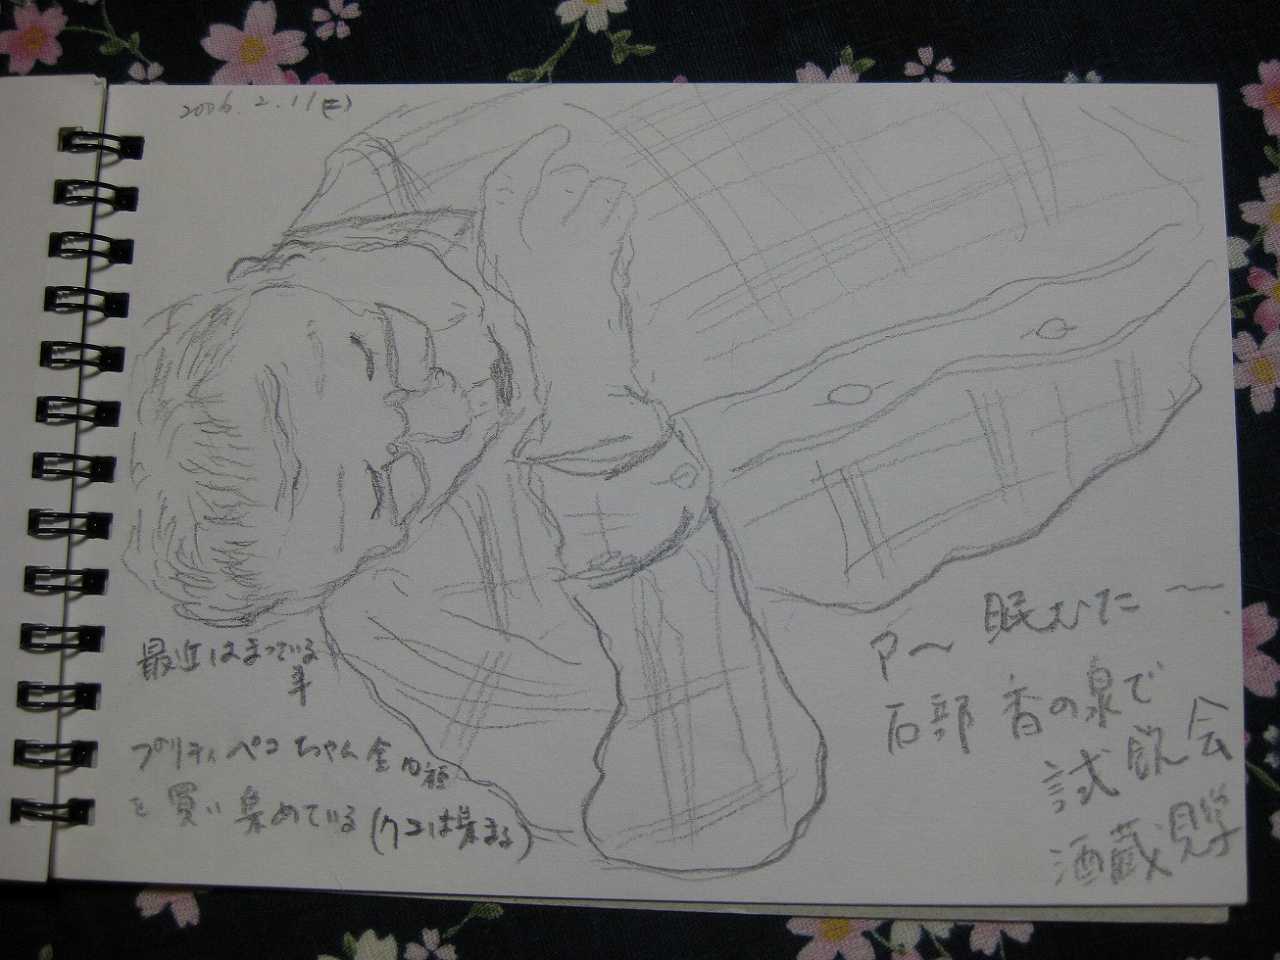 2006. 2. 11 (土)
最近はまっている
事
プリティペコちゃん全国顔
を買い集めている (ケコは集まる)
ア〜 眠むた〜
石部 香の泉で
試飲会
酒蔵見学